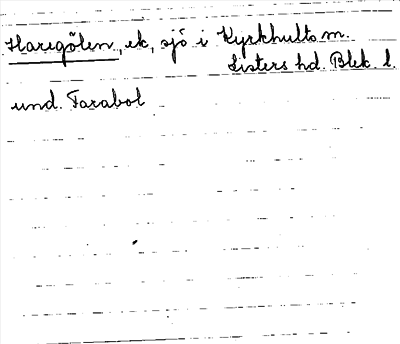 Haregölen, ek, sjö i Kyrkhults sn.
Listers hd. Blek. l.
und. Farabol